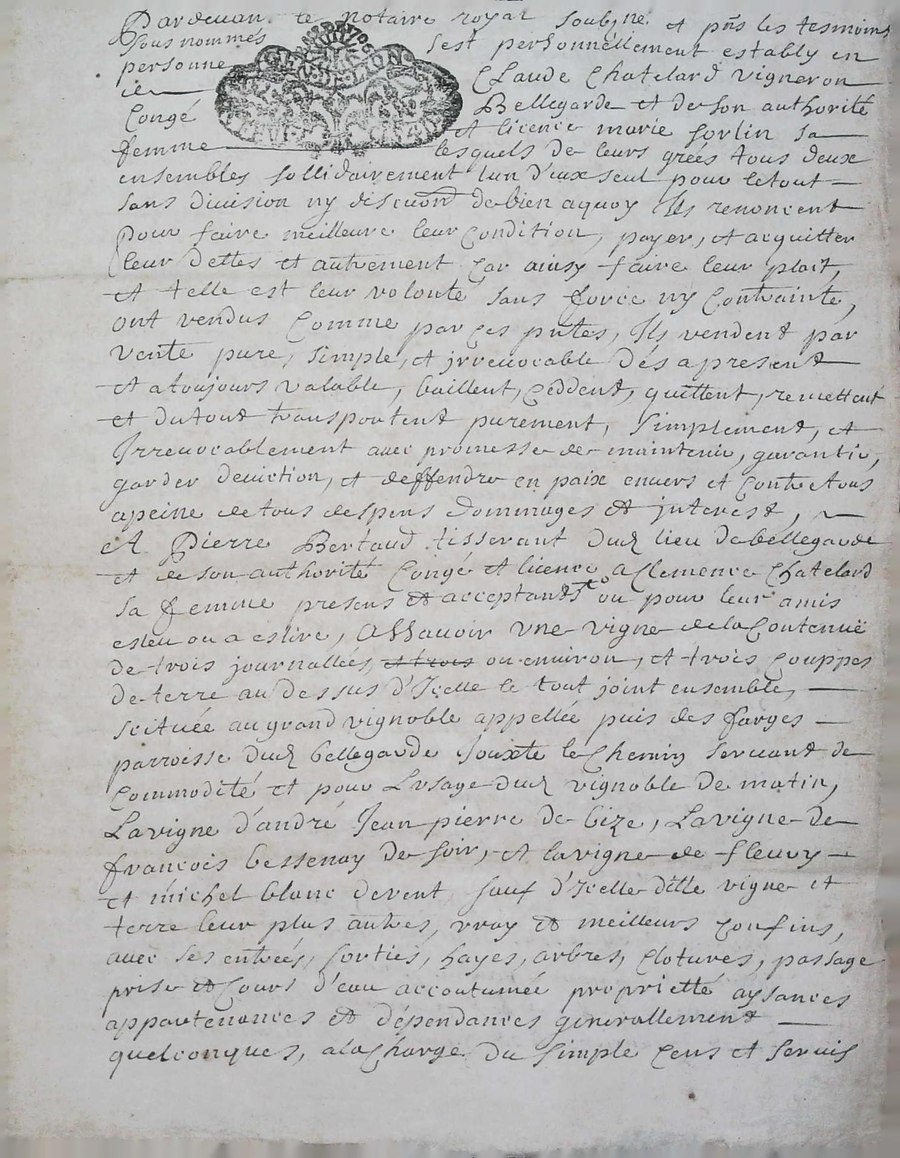 Pardevan le notaire royal soubzne et pñs les tesmoins
sous nommes sest personnellement estably en
personne Claude Chatelard vigneron
GEN DE LION
Bellegarde et de son authorité
Congé et licence marie sorlin sa
femme lesquels de leurs grées tous deux
ensembles sollidairement lun d'eux seul pour letout
sans division ny discuon de bien aquoy Ils renoncent
pour faire meilleure leur condition, payer, et acquitter
leur dettes et autrement Car ainsy faire leur plait,
et telle est leur volonté sans force ny Contrainte,
ont vendus Comme par ces pntes, Ils vendent par
vente pure, simple, et jrreuocable Dés apresent
et atoujours valable, baillent, Ceddent, quittent, remettent
et dutout transportent purement, simplement, et
Irreuocablement auec promesse de maintenir, garantir,
garder deuiction, et deffendre en paix enuers et Contre tous
apeine de tous despens dommages et interest,
A Pierre Bertaud tisserant dud lieu de bellegarde
et de son authorité Congé et licence a Clemence Chatelard
sa femme presens et acceptants ou pour leur amis
esleu ou a eslire, Assauoir vne vigne de la Contenuë
de trois journallées, et trois ou enuiron, et trois Couppes
de terre au dessus d'Icelle le tout joint ensemble,
scituée au grand vignoble appellée puis des farges
parroisse dud bellegarde Jouxte le Chemin seruant de
Commodité et pour Lusage dud vignoble de matin,
Lavigne d'andré Jean pierre de bize, Lavigne de
francois bessenay de soir, et lavigne de fleury
et michel blanc devent, sauf d'Icelle ditte vigne et
terre leur plus autres, vray et meilleurs confins,
auec ses entrées, sorties, hayes, arbres, Clotures, passage
prise et Cours d'eau accoutumée proprietté aysances
appartenances et dépendances generallement
quelconques, ala Charge du simple Cens et seruis